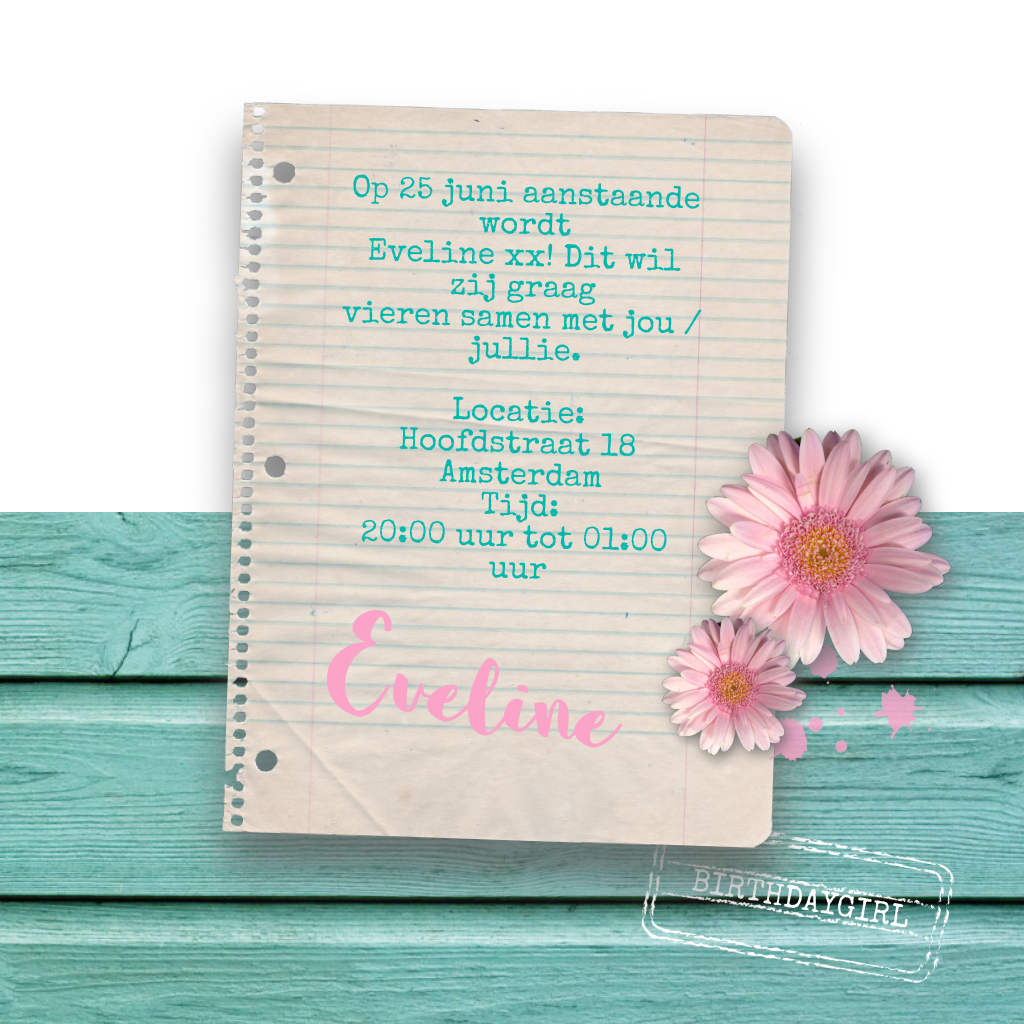 Op 25 juni aanstaande
wordt
Eveline xx! Dit wil
zij graag
vieren samen met jou /
jullie.
Locatie:
Hoofdstraat 18
Amsterdam
Tijd:
20:00 uur tot 01:00
uur
Eveline
BIRTHDAYGIRL